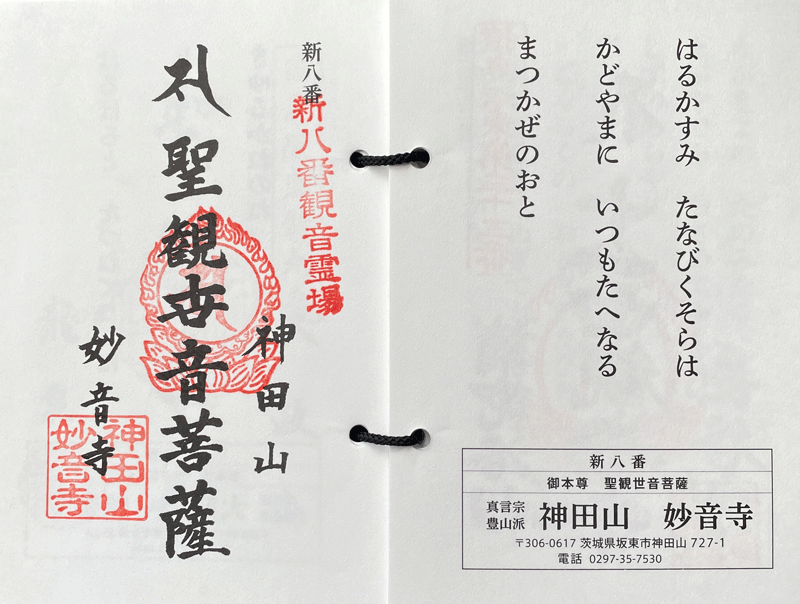 はるかすみ　たなびくそらは
かどやまに　いつもたへなる
まつかぜのおと
新八番
御本尊　聖観世音菩薩
真言宗
豊山派
神田山　妙音寺
〒306-0617 茨城県坂東市神田山 727-1
電話 0297-35-7530
新八番
新八番観音霊場
神田山
聖観世音菩薩
妙音寺
神田山
妙音寺